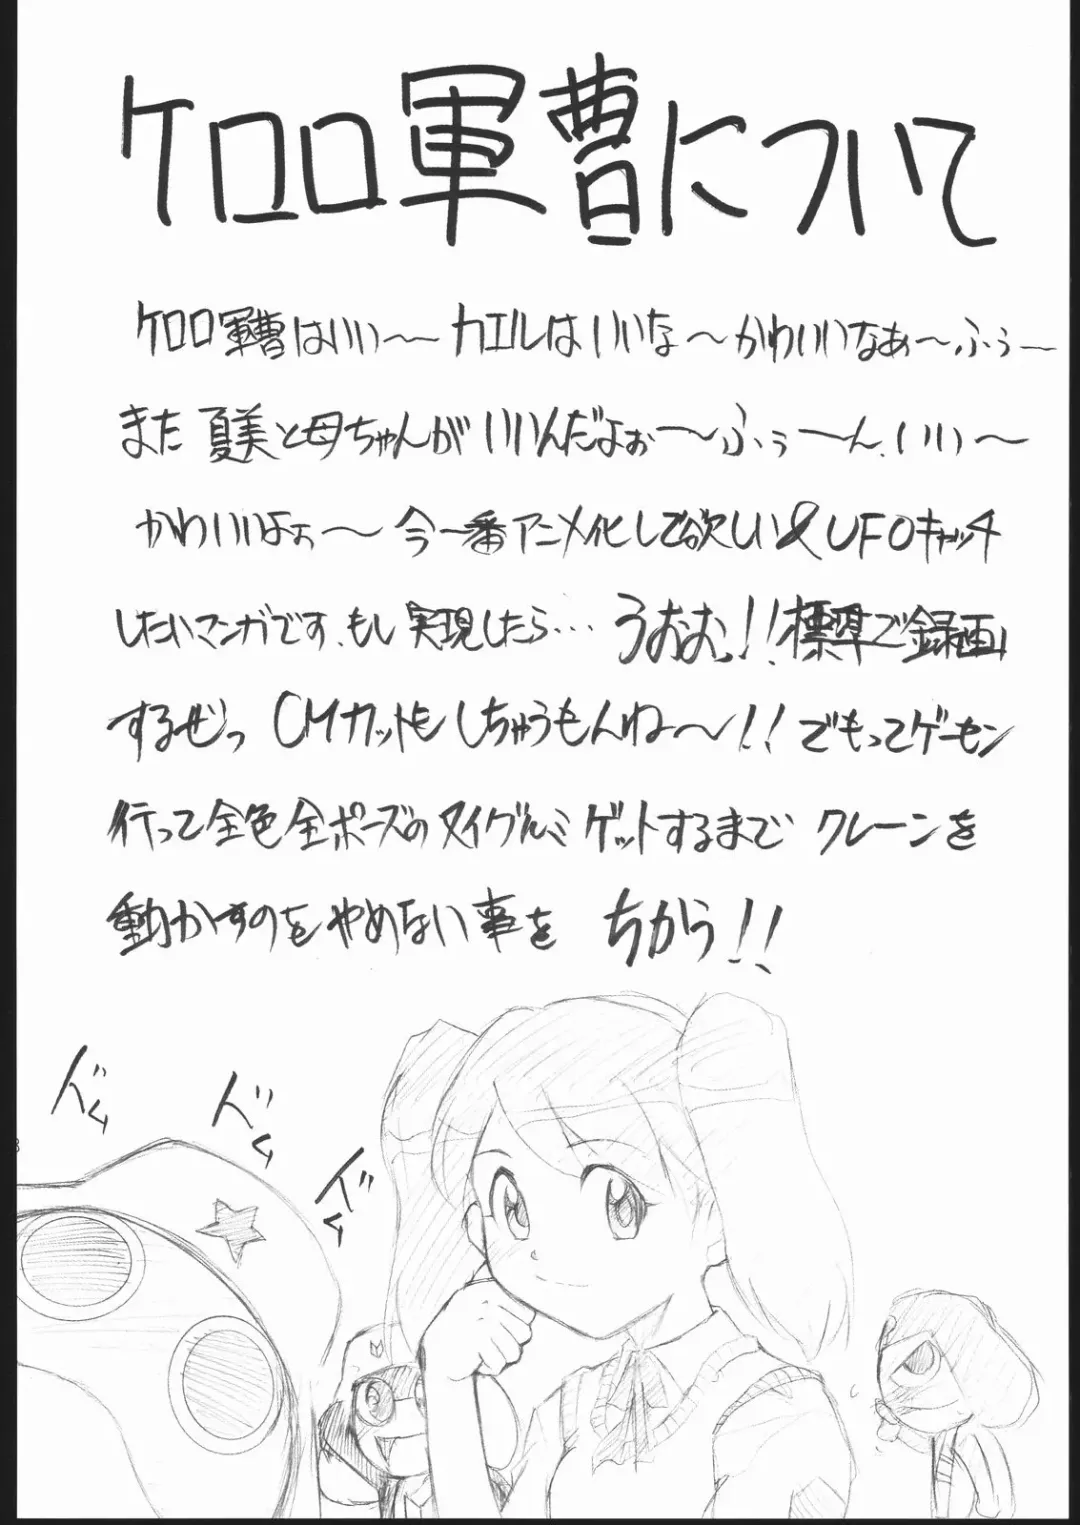 ケロロ軍曹について
ケロロ軍曹はいい〜カエルはいいな〜かわいいなぁ〜ふぅー
また夏美と母ちゃんがいいんだよぉ〜ふぅ〜ん、いい〜
かわいいよぉ〜今一番アニメ化して欲しい&UFOキャッチ
したいマンガです、もし実現したら… うおおぉ!!標準で録画
するぜっ CMカットもしちゃうもんね〜!!でもってゲーセン
行って全色全ポーズのヌイグルミゲットするまでクレーンを
動かすのをやめない事を ちかう!!
ドム
ドム
ドム